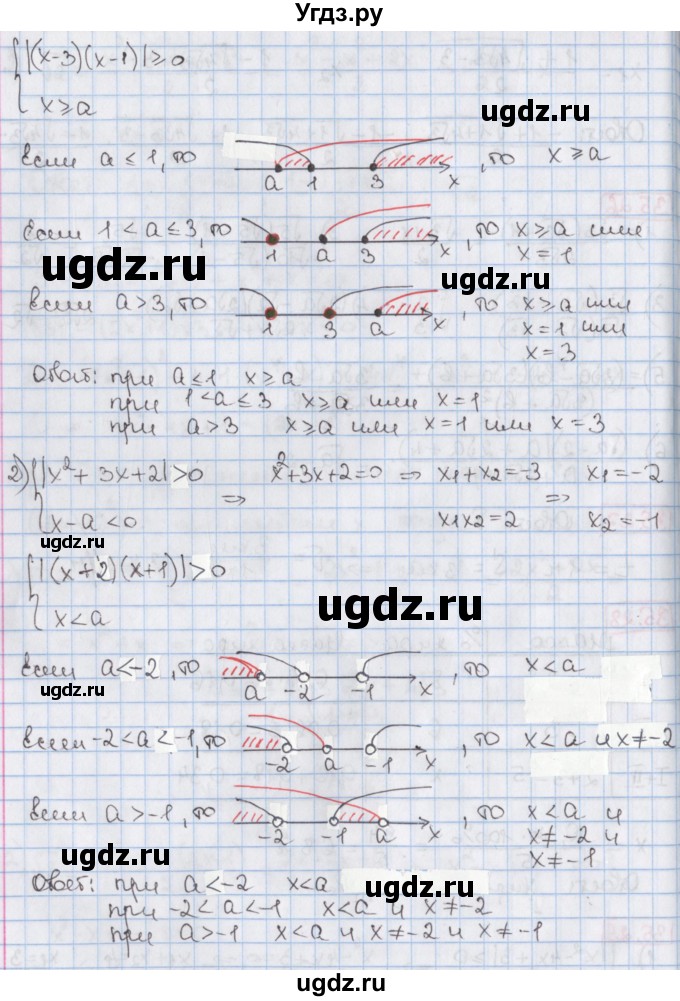 Угдз.ру
{ |(x-3)(x-1)|≥0
{ x≥a
ugdz.ru
ugdz.ru
Если a≤1, то a 1 3 x , то x≥a
Если 1<a≤3, то 1 a 3 x , то x≥a или
x=1
ugdz.ru
ugdz.ru
Если a>3, то 1 3 a x , то x≥a или
x=1 или
x=3
Ответ: при a≤1 x≥a
при 1<a≤3 x≥a или x=1
при a>3 x≥a или x=1 или x=3
2) { |x²+3x+2|>0 ⇒ x²+3x+2=0 ⇒ x₁+x₂=-3 ⇒ x₁=-2
{ x-a<0 x₁x₂=2 x₂=-1
ugdz.ru
{ |(x+2)(x+1)|>0
{ x<a
ugdz.ru
Если a<-2, то a -2 -1 x , то x<a
ugdz.ru
Если -2<a<-1, то -2 a -1 x , то x<a и x≠-2
Если a>-1, то -2 -1 a x , то x<a и
x≠-2 и
x≠-1
ugdz.ru
Ответ: при a<-2 x<a
ugdz.ru
при -2<a<-1 x<a и x≠-2
при a>-1 x<a и x≠-2 и x≠-1
ugdz.ru